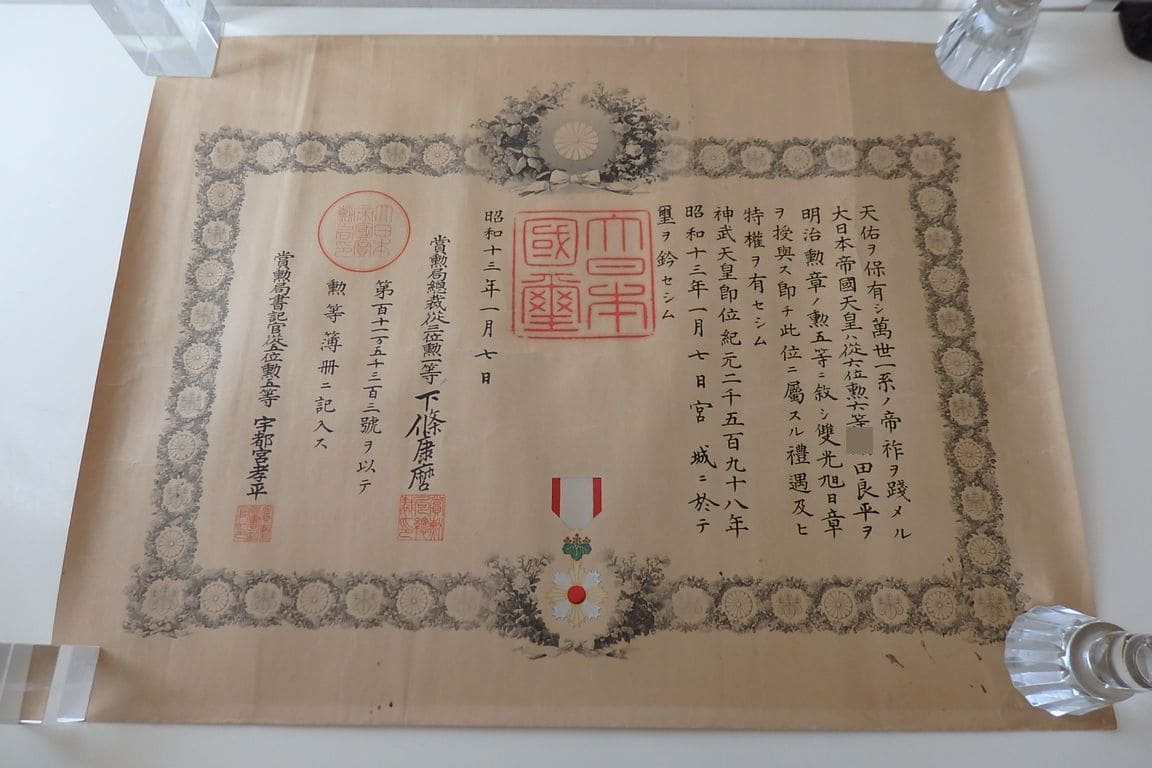 天佑ヲ保有シ萬世一系ノ帝祚ヲ踐メル
大日本帝國天皇ハ從六位勲六等田良平ヲ
明治勲章ノ勲五等ニ敘シ雙光旭日章
ヲ授與ス即チ此位ニ屬スル禮遇及ヒ
特權ヲ有セシム
神武天皇即位紀元二千五百九十八年
昭和十三年一月七日宮城ニ於テ
璽ヲ鈐セシム
大日本
國璽
昭和十三年一月七日
賞勲局總裁從三位勲一等下條康麿
第百十二万五千三百三號ヲ以テ
勲等簿冊ニ記入ス
賞勲局書記官從五位勲五等宇都宮孝平